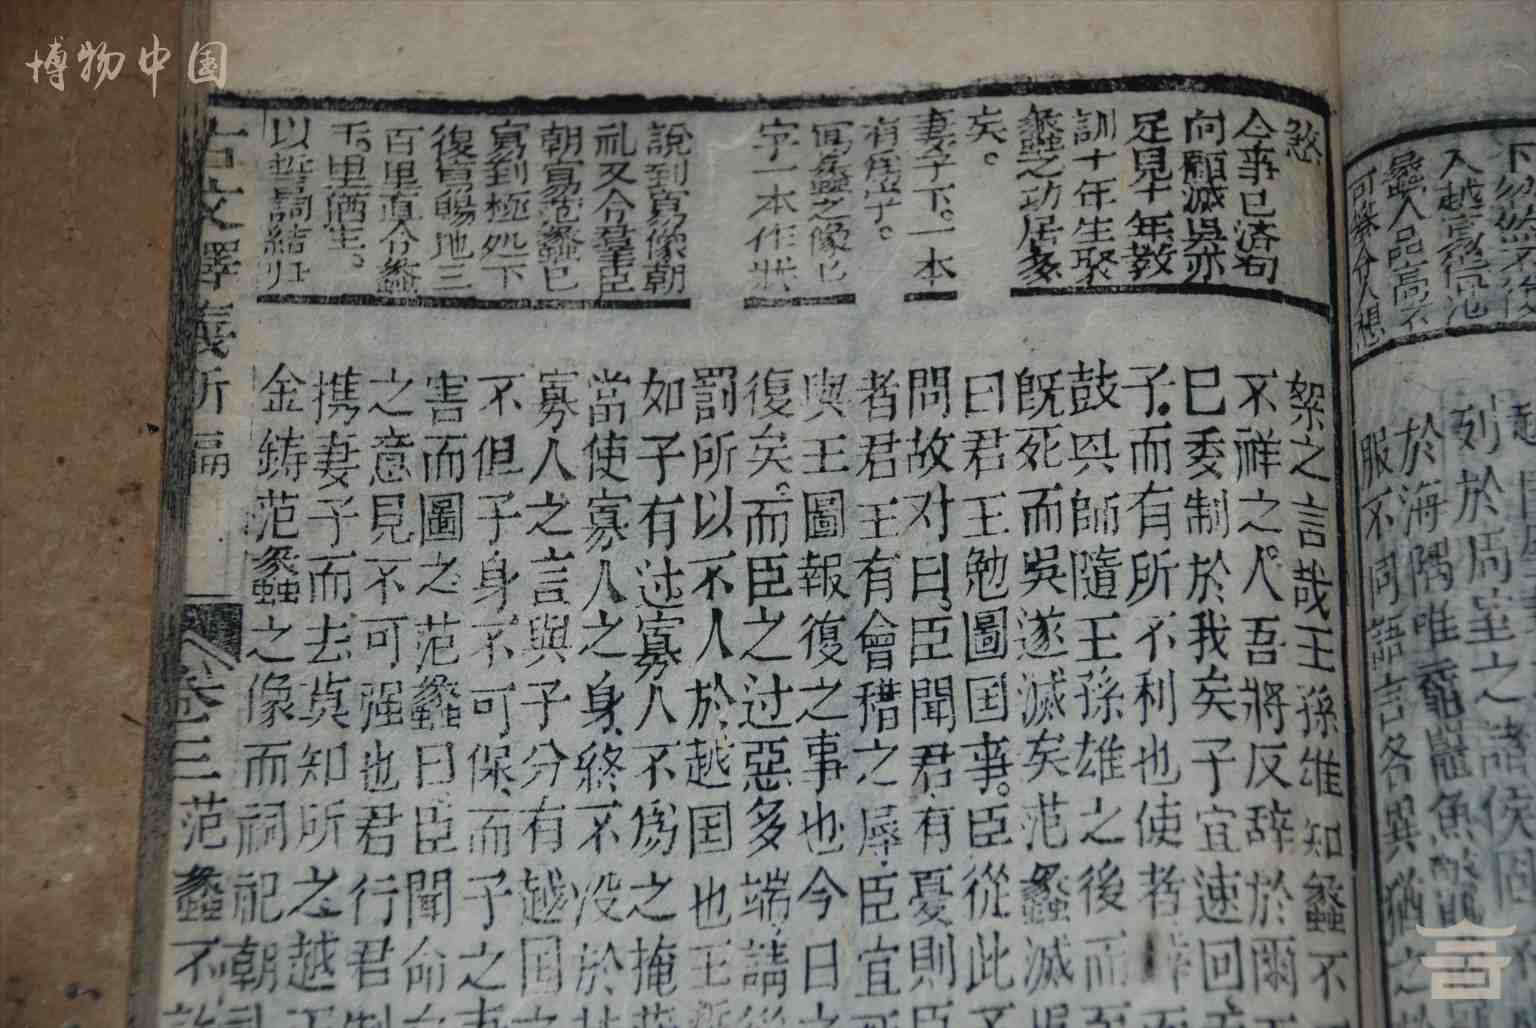 博物中国
下
入越
蠡人品高
列於周室之諸侯
於海隅唯黿鼉魚鱉
服不同語言各異猶之
愁
今事已濟句
向願滅吳亦
足見十年教
訓十年生聚
蠡之功居多
矣。
妻子下。一本
有爲字。
寫蠡之像也
字一本作狀
說到寫像朝
礼又令羣臣
朝寫范蠡已
寫到極処下
復寫賜地三
百里直令蠡
千里猶生。
以哲詞結归
絮之言哉王孫雄知蠡不
不祥之。人吾將反辞於爾
已委制於我矣子宜速回
子。而有所不利也使者
鼓興師隨王孫雄之後而至
既死而吳遂滅矣范蠡滅
曰君王勉圖国事。臣從此
問故対曰。臣聞君有憂則
者君王有會稽之辱。臣宜
與王圖報復之事也今日
復矣。而臣之过惡多端請
罰所以不人於越国也王
如子有过寡人不爲之掩
當使寡人之身。終不没於
寡人之言與子分有越国
不但子身不可保。而子之
害而圖之范蠡曰臣聞命
之意見不可强也君行君
携妻子而去莫知所之越
金鋳范蠡之像而祠祀朝
古文釋義新編
卷三 范蠡不